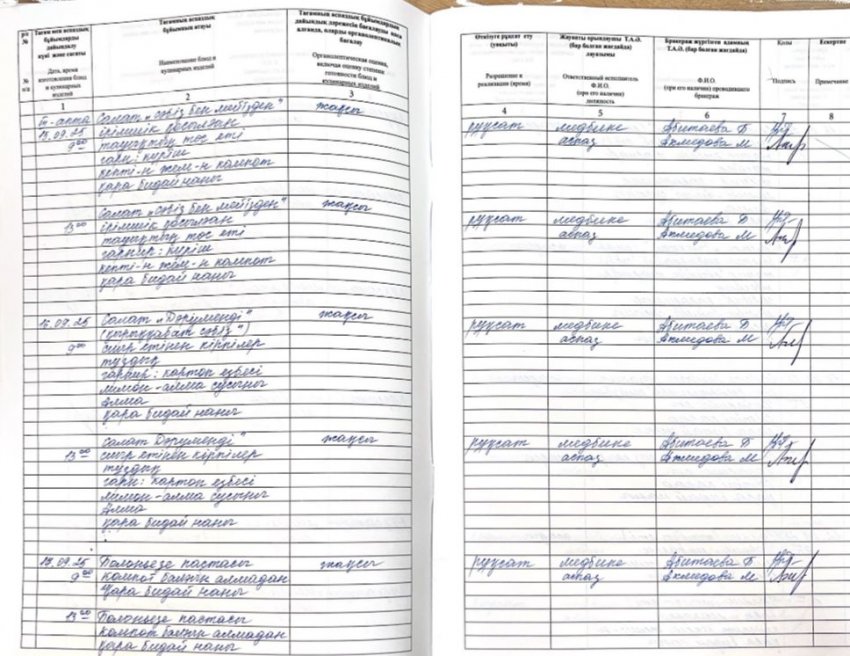 р/с
№
Тағам мен аспаздық
бұйымдарды
дайындау
күні және сағаты
Тағамның аспаздық
бұйымның атауы
Тағамның аспаздық бұйымдардың
дайындық дәрежесін бағалауды қоса
алғанда, оларды органолептикалық
бағалау
№
п/п
Дата, время
изготовления блюд
и кулинарных
изделий
Наименование блюд и
кулинарных изделий
Органолептическая оценка,
включая оценку степени
готовности блюд и
кулинарных изделий
1
2
3
III-апта
Салат „сәбіз бен мейізден"
жақсы
15.09.25
ірімшік қосылған
9⁰⁰
тауықтың төс еті
гарн: күріш
кепті-н жем-н компот
қара бидай наны
Салат „сәбіз бен мейізден"
жақсы
13⁰⁰
ірімшік қосылған
тауықтың төс еті
гарнир: күріш
кепті-н жем-н компот
қара бидай наны
16.09.25
Салат „Дәруменді"
жақсы
(қырыққабат сәбіз")
9⁰⁰
сиыр етінен кірпілер
тұздық
гарнир: картоп езбесі
лимон-алма сусыны
Алма
қара бидай наны
салат Дәруменді"
жақсы
13⁰⁰
сиыр етінен кірпілер
тұздық
гарн: картоп езбесі
лимон-алма сусыны
Алма
қара бидай наны
17.09.25
Балоньезе пастасы
жақсы
9⁰⁰
компот балғын алмадан
Қара бидай наны
13⁰⁰
Болоньезе пастасы
компот балғын алмадан
қара бидай наны
Өткізуге рұқсат ету
(уақыты)
Жауапты орындаушы Т.А.Ә.
(бар болған жағдайда)
лауазымы
Бракераж жүргізген адамның
Т.А.Ә. (бар болған жағдайда)
Қолы
Ескертпе
Разрешение к
реализации (время)
Ответственный исполнитель
Ф.И.О.
(при его наличии)
должность
Ф.И.О.
(при его наличии) проводившего
бракераж
Подпись
Примечание
4
5
6
7
8
рұқсат
медбике
Абитаева Б
аспаз
Ахмедова М
рұқсат
медбике
Абитаева Б
аспаз
Ахмедова М
рұқсат
медбике
Абитаева Б
аспаз
Ахмедова М
рұқсат
медбике
Абитаева Б
аспаз
Ахмедова М
рұқсат
медбике
Абитаева Б
аспаз
Ахмедова М